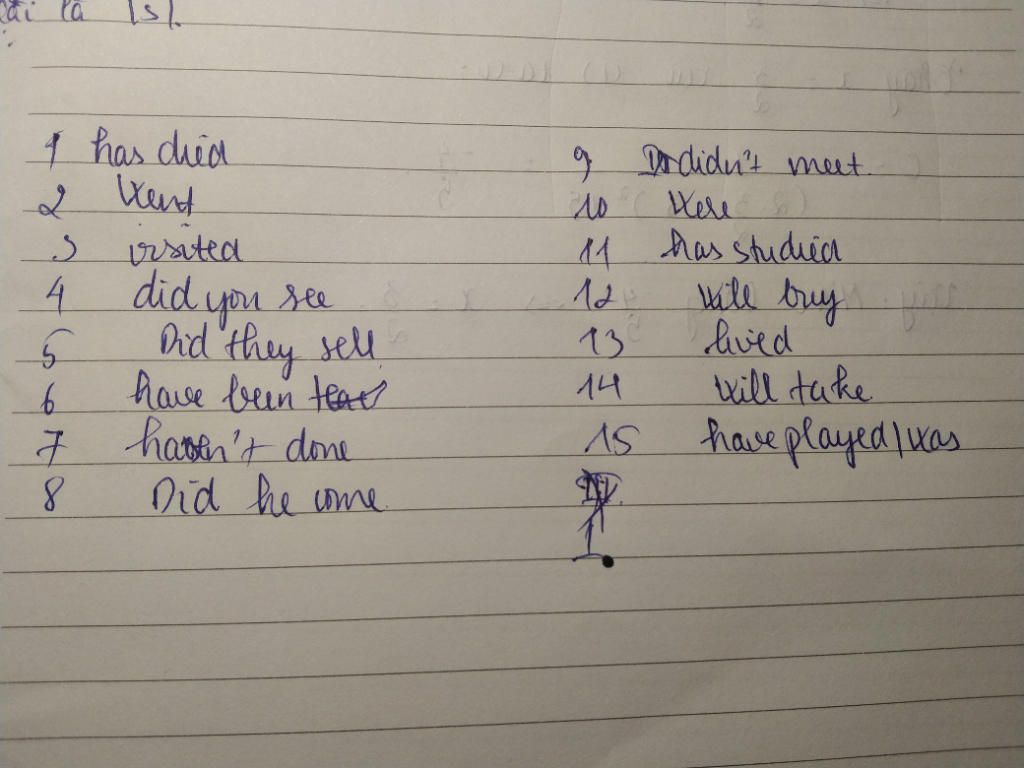 là [s].
1 has died
2 Went
3 visited
4 did you see
5 Did they sell
6 have been
7 haven't done
8 Did he come
9 didn't meet.
10 Were
11 has studied
12 Will buy
13 lived
14 Will take
15 have played/was